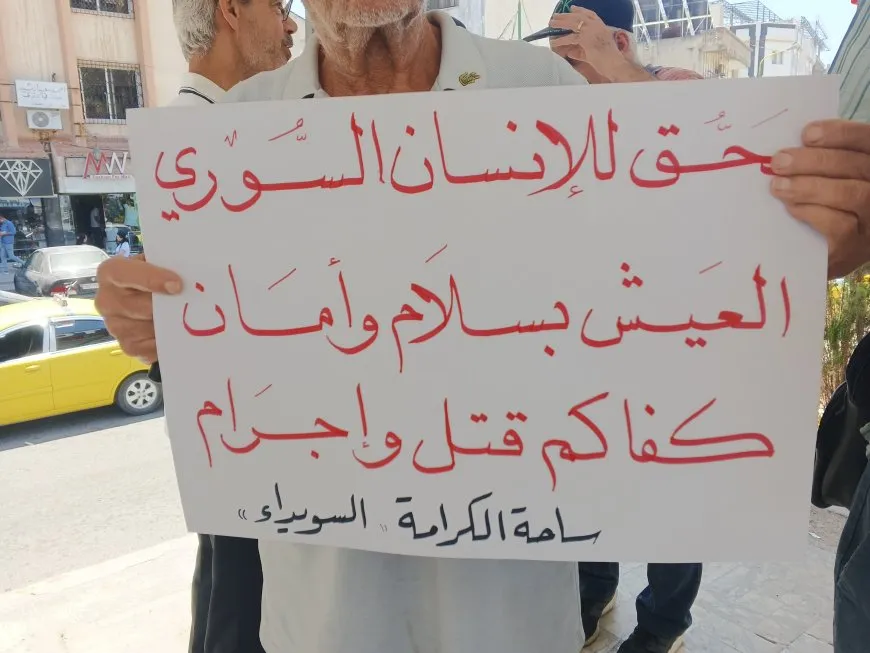 يَحُّق للإنسان السُّوري
العيَش بسلَام وأمَان
كفاكم قتل وإجرَام
ساحة الكرامة "السويداء"